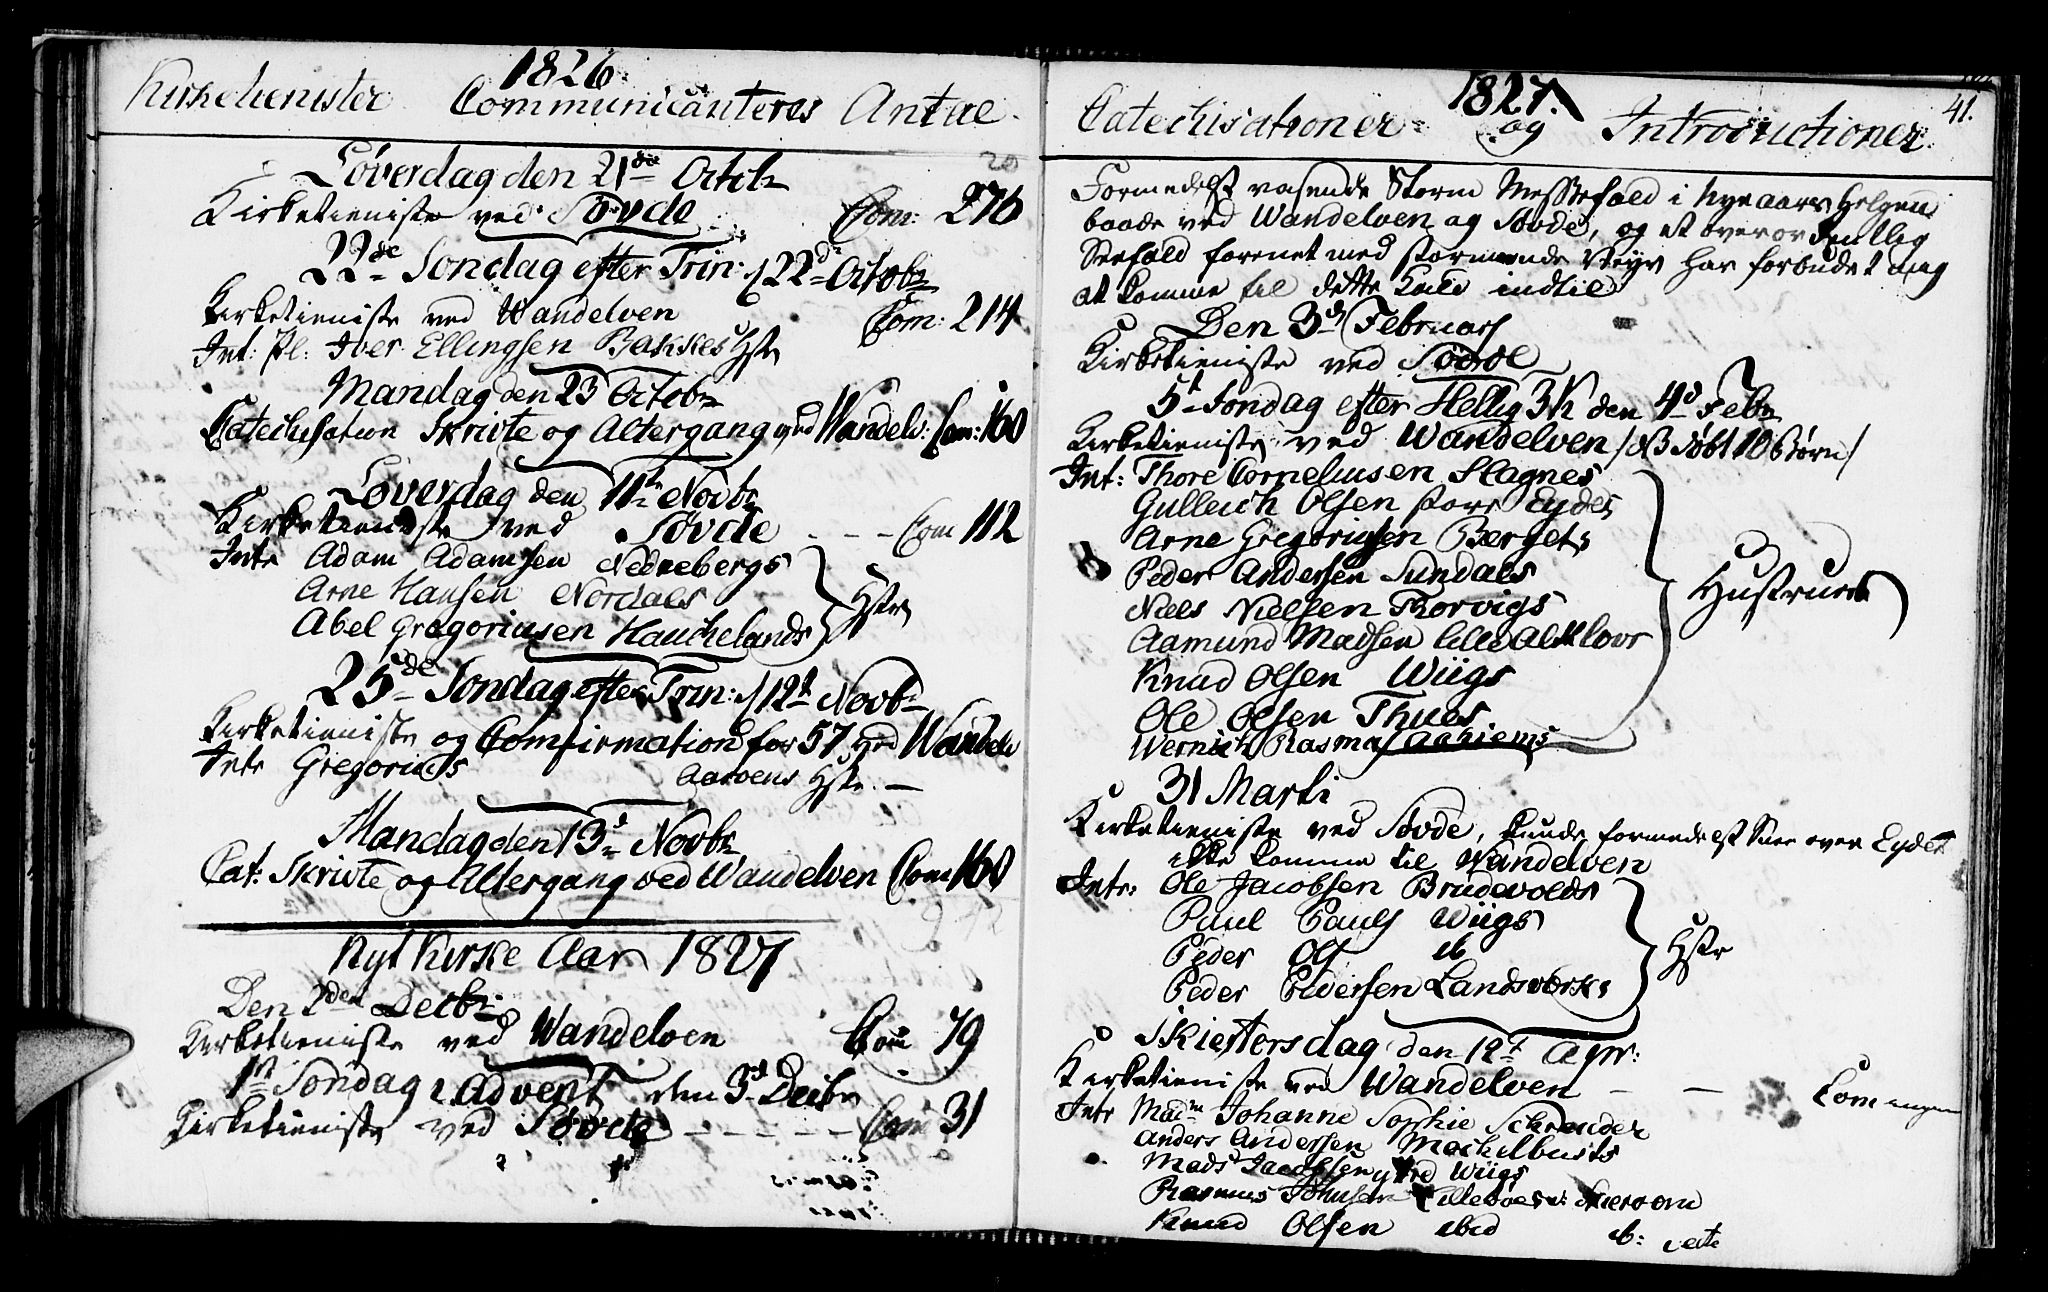 1826.
Kirketienister Communicanteres Antal.
20
Løverdag den 21de Octobr
Kirketieniste ved Søvde Com: 276
22de Søndag efter Trin: /22d Octobr
Kirketieniste ved Wandelven Com: 214
Int: Pl: Iver Ellingsen Bakkes Hstr
Mandag den 23 Octobr
Catechisation Skrivte og Altergang ved Wandelv: Com: 160
Løverdag den 11te Novbr
Kirketieniste ved Søvde - - - Com 112
Intr Adam Adamsen Nedrebergs
Arne Hansen Nordals
Abel Gregoriusen Hauchelands
Hstr
25de Søndag efter Trin: /12t Novbr
Kirketieniste og Comfirmation for 57 ved Wandelv
Intr Gregorius Aarøens Hstr. —
Mandag den 13d Novbr
Cat: Skrivte og Altergang ved Wandelven Com 160
Nyt Kirke Aar 1827
Den 2den Decbr:
Kirketieniste ved Wandelven Com 79
1st Søndag i Advent den 3d Decbr
Kirketieniste ved Søvde - - - - - Com 31
1827.
41.
Catechisationer og Introductioner
Formedelst rasende Storm Messefald i Nyeaars Helgen
baade ved Wandelven og Søvde, og et overordentlig
Sneefald forenet med stormende Veyr har forbudet mig
at komme til dette Kald indtil
Den 3d Februar
Kirketieniste ved Søvde
5t Søndag efter Hellig 3K den 4d Febr
Kirketieniste ved Wandelven /NB døbt 10 Børn/
Int: Thore Corneliusen Hagnes
Gulleich Olsen store Eydes
Arne Gregoriusen Bergets
Peder Andersen Sundals
Niels Nielsen Thorvigs
Aamund Madsen lille
Knud Olsen Wiigs
Ole Olsen Thues
Wernich Rasmus Aahiems
Hustruer
31 Marti
Kirketieniste ved Søvde, kunde formedelst Snee over Eydet
ikke komme til Wandelven
Intr: Ole Jacobsen Brudevolds
Paul Pauls Wiigs
Peder Ols ib
Peder Pedersen Landsverks
Hstr
Skiertorsdag den 12t Apr:
Kirketieniste ved Wandelven — — Com ingen
Intr Madm Johanne Sophie Schrøder
Anders Andersen Machelbusts
Mads Jacobsen ytre Wiigs
Rasmus Johnsen Lillebøe i Skieroom
Knud Olsen ibid ib: